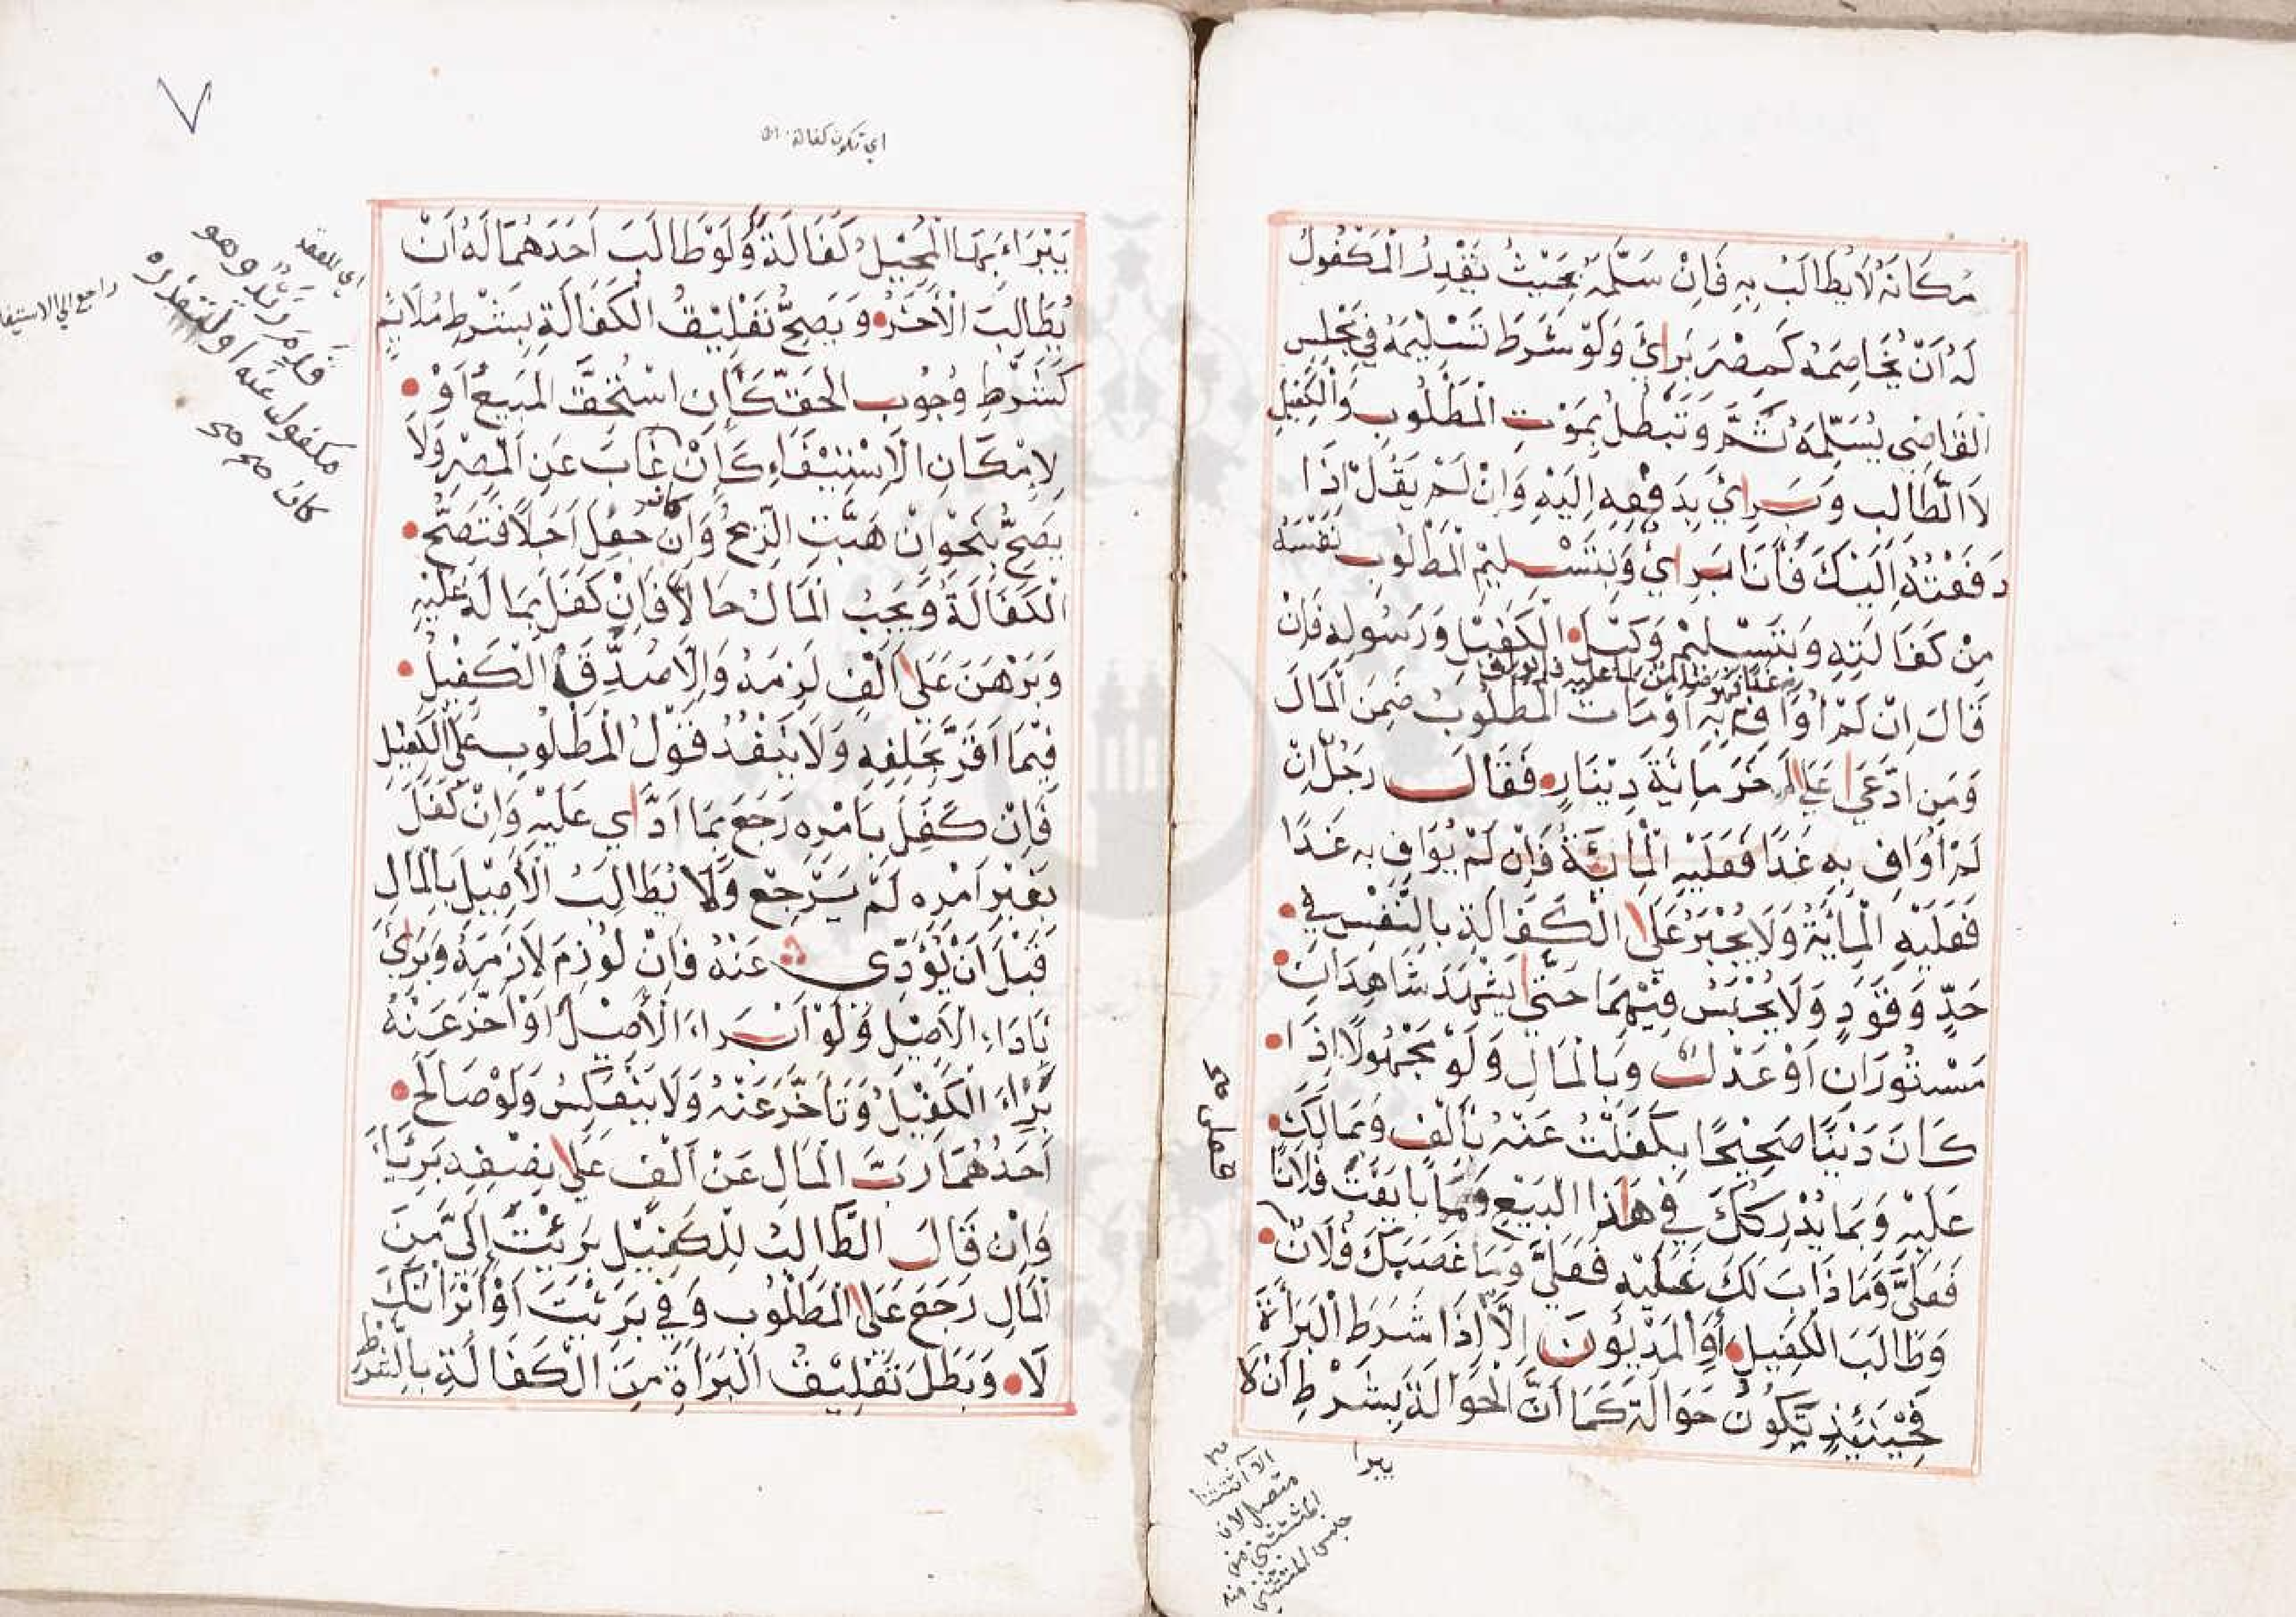 مَكَانَهُ لَا يُطَالَبُ بِهِ فَاِنْ سَلَّمَهُ بِحَيْثُ يَقْدِرُ الْمَكْفُولُ
لَهُ اَنْ يُخَاصِمَهُ كَمِصْرٍ بَرِئَ وَلَوْ شَرَطَ تَسْلِيمَهُ فِي مَجْلِسِ
الْقَاضِي يُسَلِّمُهُ ثَمَّ وَتَبْطُلُ بِمَوْتِ الْمَطْلُوبِ وَالْكَفِيلِ
لَا الطَّالِبِ وَبَرِئَ بِدَفْعِهِ اِلَيْهِ وَاِنْ لَمْ يَقُلْ اِذَا
دَفَعْتُهُ اِلَيْكَ فَأَنَا بَرِيءٌ وَبِتَسْلِيمِ الْمَطْلُوبِ نَفْسَهُ
مِنْ كَفَالَتِهِ وَبِتَسْلِيمِ وَكِيلِ الْكَفِيلِ وَرَسُولِهِ فَاِنْ
قَالَ اِنْ لَمْ اُوَافِ بِهِ اَوْ مَاتَ الْمَطْلُوبُ ضَمِنَ الْمَالَ
وَمَنِ ادَّعَى عَلَى اٰخَرَ مِائَةَ دِينَارٍ فَقَالَ رَجُلٌ اِنْ
لَمْ اُوَافِ بِهِ غَدًا فَعَلَيْهِ الْمِائَةُ فَاِنْ لَمْ يُوَافِ بِهِ غَدًا
فَعَلَيْهِ الْمِائَةُ وَلَا يُجْبَرُ عَلَى الْكَفَالَةِ بِالنَّفْسِ فِي
حَدٍّ وَقَوَدٍ وَلَا يُحْبَسُ فِيهِمَا حَتَّى يَشْهَدَ شَاهِدَانِ
مَسْتُورَانِ اَوْ عَدْلٌ وَبِالْمَالِ وَلَوْ مَجْهُولًا اِذَا
كَانَ دَيْنًا صَحِيحًا بِكَفَلْتُ عَنْهُ بِأَلْفٍ وَبِمَا لَكَ
عَلَيْهِ وَبِمَا يُدْرِكُكَ فِي هَذَا الْبَيْعِ وَمَا بَايَعْتَ فُلَانًا
فَعَلَيَّ وَمَا ذَابَ لَكَ عَلَيْهِ فَعَلَيَّ وَمَا غَصَبَكَ فُلَانٌ
وَطَالَبَ الْكَفِيلَ أَوِ الْمَدْيُونَ اِلَّا اِذَا شَرَطَ الْبَرَأَةَ
فَحِينَئِذٍ تَكُونُ حَوَالَةً كَمَا اَنَّ الْحَوَالَةَ بِشَرْطِ اَنْ لَا
يبرا
فعلى صح
متصل لان
المستثنى من
جنس المستثنى منه
٧
اي تكون كفالة
يَبْرَاءَ بِهَا الْمُحِيلُ كَفَالَةٌ وَلَوْ طَالَبَ اَحَدَهُمَا لَهُ اَنْ
يُطَالِبَ الْاٰخَرَ وَيَصِحُّ تَعْلِيقُ الْكَفَالَةِ بِشَرْطٍ مُلَائِمٍ
كَشَرْطِ وُجُوبِ الْحَقِّ كَاِنِ اسْتُحِقَّ الْمَبِيعُ اَوْ
لِاِمْكَانِ الْاِسْتِيفَاءِ كَاِنْ غَابَ عَنِ الْمِصْرِ وَلَا
يَصِحُّ بِنَحْوِ اِنْ هَبَّتِ الرِّيحُ وَاِنْ جَعَلَ اَجَلًا فَتَصِحُّ
الْكَفَالَةُ وَيَجِبُ الْمَالُ حَالًّا فَاِنْ كَفَلَ بِمَا لَهُ عَلَيْهِ
وَبَرْهَنَ عَلَى اَلْفٍ لَزِمَهُ وَاِلَّا صُدِّقَ الْكَفِيلُ
فِيمَا اَقَرَّ بِحَلِفِهِ وَلَا يَنْفُذُ قَوْلُ الْمَطْلُوبِ عَلَى الْكَفِيلِ
فَاِنْ كَفَلَ بِاَمْرِهِ رَجَعَ بِمَا اَدَّى عَلَيْهِ وَاِنْ كَفَلَ
بِغَيْرِ اَمْرِهِ لَمْ يَرْجِعْ وَلَا يُطَالِبُ الْاَصِيلَ بِالْمَالِ
قَبْلَ اَنْ يُؤَدِّيَ عَنْهُ فَاِنْ لُوزِمَ لَازَمَهُ وَبَرِئَ
بِاَدَاءِ الْاَصِيلِ وَلَوْ اَبْرَاءَ الْاَصِيلَ اَوْ اَخَّرَ عَنْهُ
بَرِاءَ الْكَفِيلُ وَتَاَخَّرَ عَنْهُ وَلَا يَنْعَكِسُ وَلَوْ صَالَحَ
اَحَدُهُمَا رَبَّ الْمَالِ عَنْ اَلْفٍ عَلَى نِصْفِهِ بَرِئَا
وَاِنْ قَالَ الطَّالِبُ لِلْكَفِيلِ بَرِئْتَ اِلَيَّ مِنَ
الْمَالِ رَجَعَ عَلَى الْمَطْلُوبِ وَفِي بَرِئْتَ اَوْ اَبْرَأْتُكَ
لَا وَبَطَلَ تَعْلِيقُ الْبَرَاَةِ مِنَ الْكَفَالَةِ بِالشَّرْطِ
قدم زيد وهو
مكفول عنه او لتعذره
كان صح صح